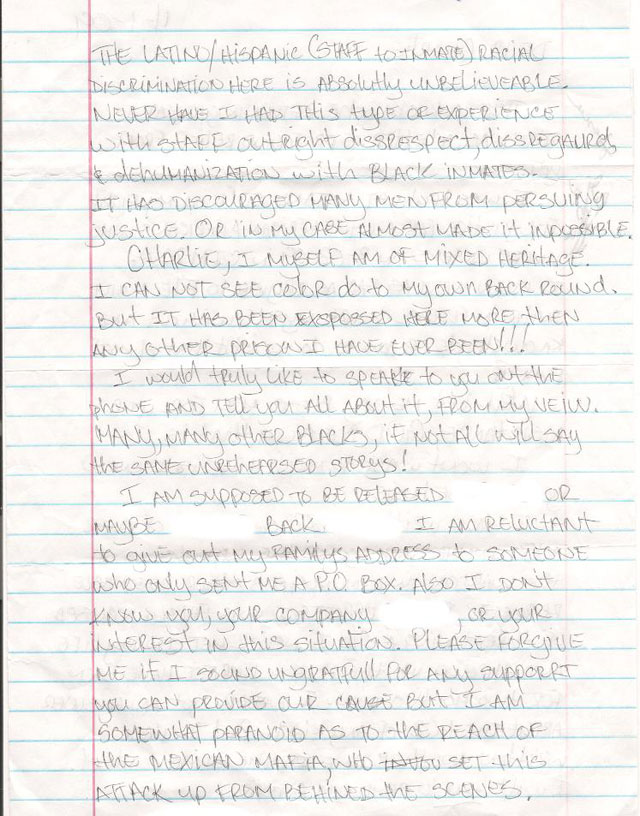 THE LATINO/HISPANIC (STAFF to INMATE) RACIAL
DISCRIMINATION HERE IS ABSOLUTLY UNBELIEVEABLE.
NEVER HAVE I HAD THIS type OF EXPERIENCE
with STAFF outright dissrespect, dissregaurd,
& dehumanization with BLACK INMATES.
IT HAS DISCOURAGED MANY MEN FROM PERSUING
justice. OR IN MY CASE ALMOST MADE IT IMPOSSIBLE.
CHARLIE, I MYSELF AM OF MIXED HERITAGE.
I CAN NOT SEE COLOR do to MY OWN BACK ROUND.
BUT IT HAS BEEN EXSPOSSED HERE MORE then
ANY other PRISON I HAVE EVER BEEN!!!
I would truly like to SPEAK to you ont the
phone AND tell you ALL ABOUT it, FROM MY VEIW.
MANY, MANY other BLACKS, if NOT ALL will SAY
the SAME UNREHEARSED STORYS!
I AM SUPPOSED TO BE RELEASED OR
MAYBE BACK I AM RELUCTANT
to give out MY FAMILYS ADDRESS to SOMEONE
who only SENT ME A P.O. BOX. ALSO I DON'T
KNOW YOU, YOUR COMPANY , OR YOUR
INTEREST IN this SITUATION. PLEASE FORGIVE
ME if I SOUND UNGRATFULL FOR ANY SUPPORT
you CAN PROVIDE OUR CAUSE BUT I AM
SOMEWHAT PARANOID AS TO the REACH OF
the MEXICAN MAFIA, WHO SET this
ATTACK UP FROM BEHIND the SCENES.